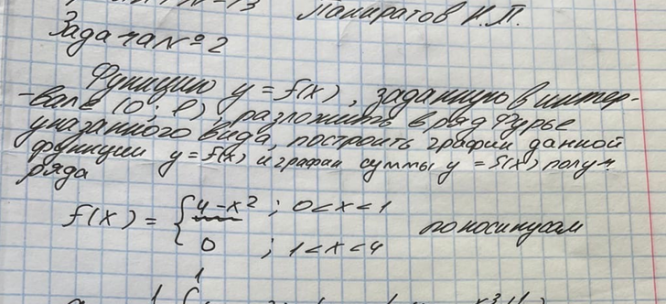 Панкратов И.П.
Задача № 2
Функцию y = f(x), заданную в интер-
-вале (0; l), разложить в ряд Фурье
указанного вида, построить график данной
функции y = f(x) и график суммы y = S(x) получ
ряда
f(x) = { 4 - x² ; 0 < x < 1
по косинусам
0 ; 1 < x < 4